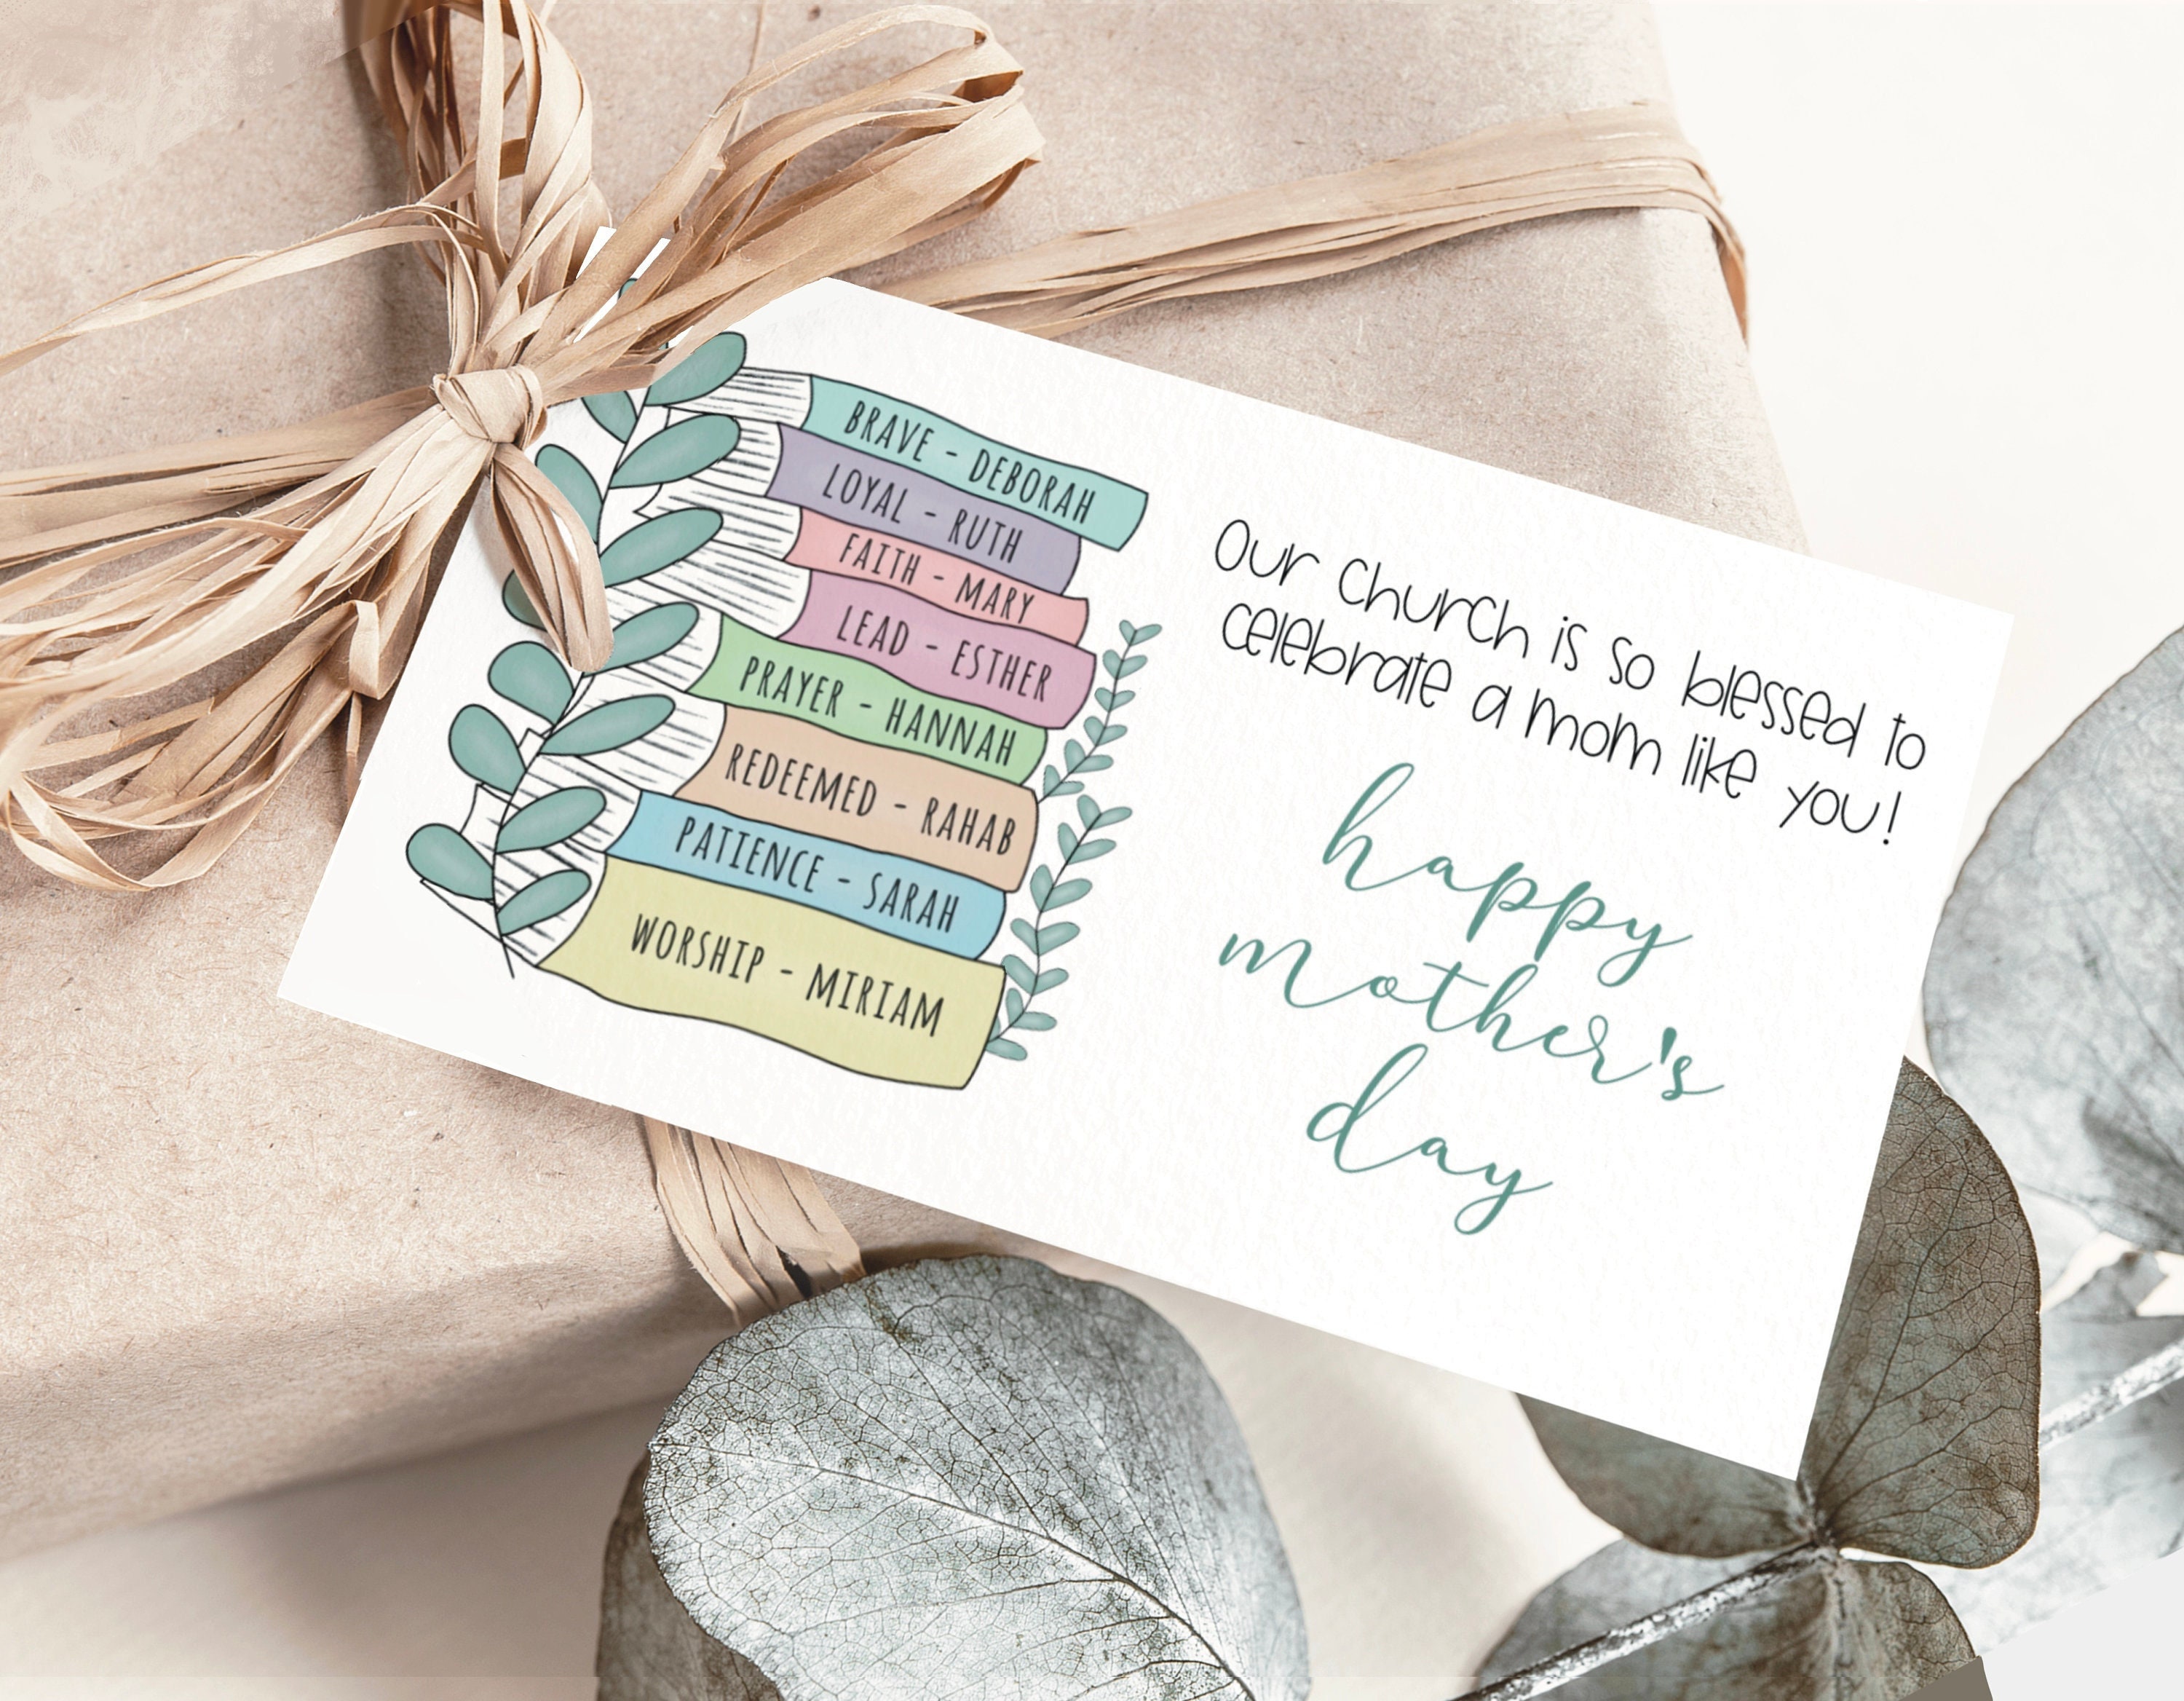 BRAVE - DEBORAH
LOYAL - RUTH
FAITH - MARY
LEAD - ESTHER
PRAYER - HANNAH
REDEEMED - RAHAB
PATIENCE - SARAH
WORSHIP - MIRIAM
Our church is so blessed to
celebrate a mom like you!
happy
mother's
day